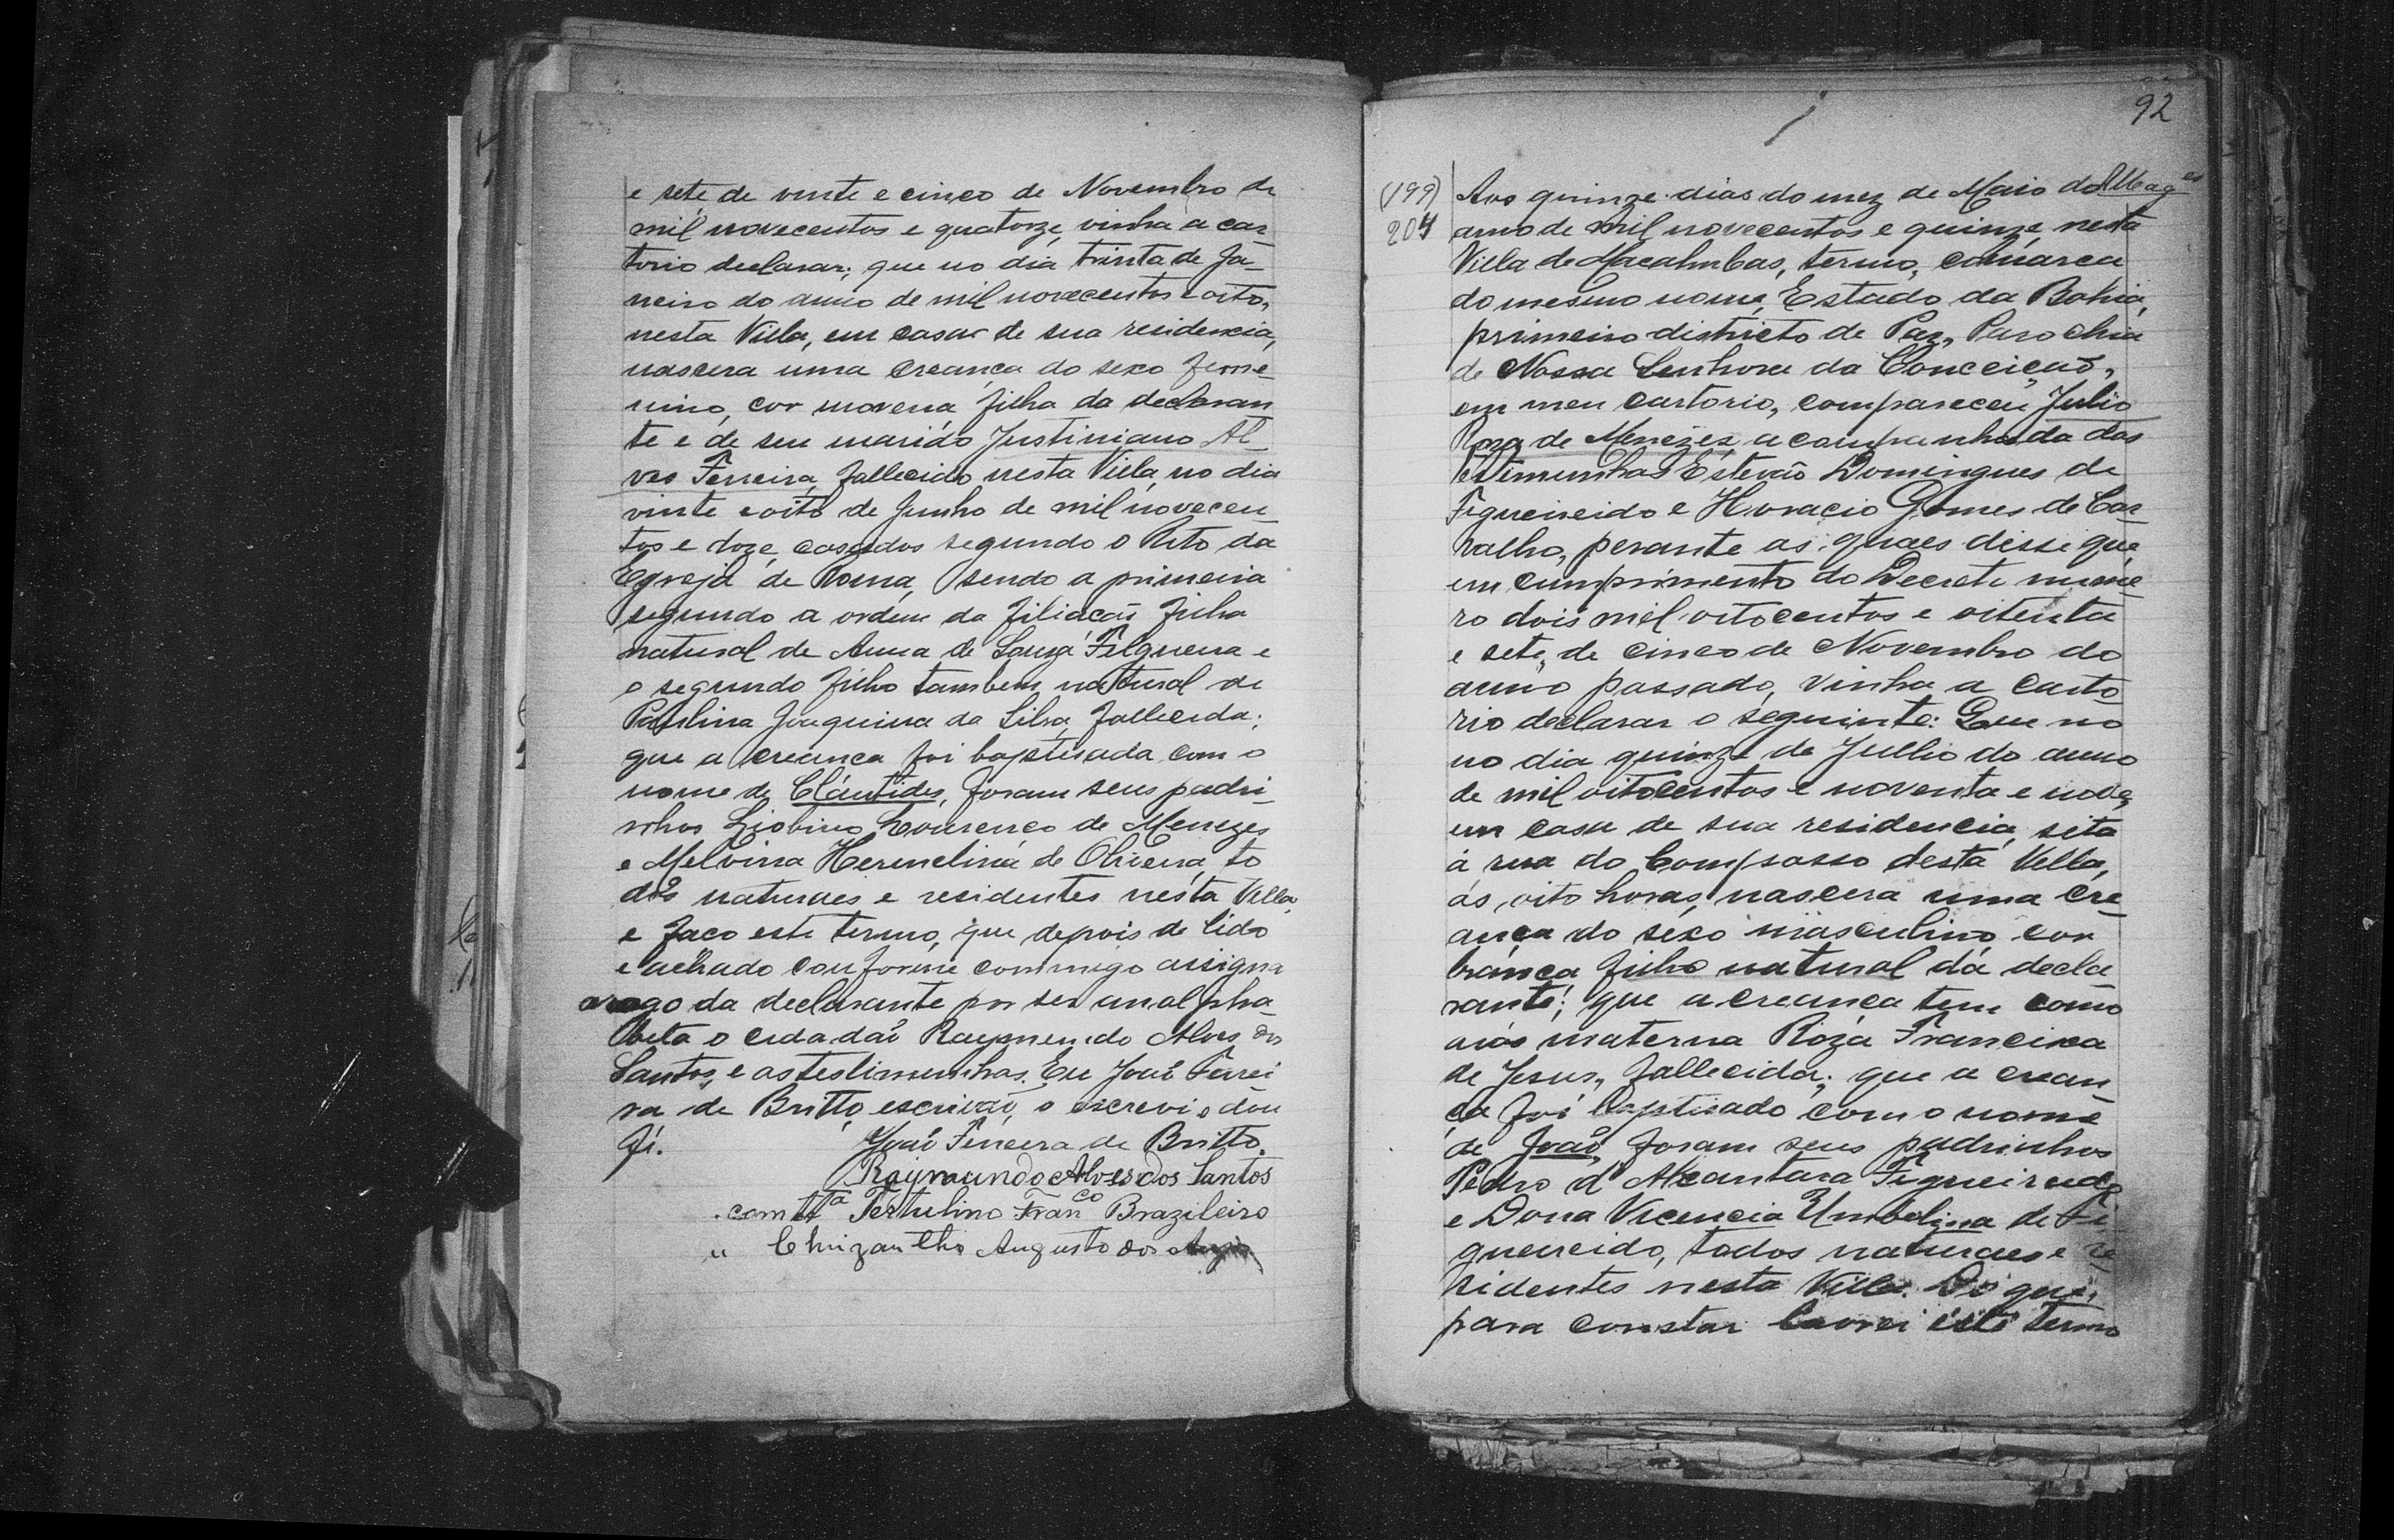 e sete de vinte e cinco de Novembro de
mil novecentos e quatorze, vinha a car-
torio declarar; que no dia trinta de Ja-
neiro do anno de mil novecentos e oito,
nesta Villa, em casa de sua residencia,
nascera uma creança do sexo feme-
nino, cor morena filha da declaran
te e de seu marido Justiniano Al-
ves Ferreira, fallecido nesta Villa, no dia
vinte e oito de Junho de mil novecen-
tos e doze, casados segundo o Rito da
Egreja de Roma, sendo a primeira
segundo a ordem da filiação filha
natural de Anna de Souza Filgueira e
o segundo filho tambem natural de
Paulina Joaquina da Silva, fallecida;
que a creança foi baptisada com o
nome de Cláutides, foram seus padri-
nhos Liobino Lourenço de Menezes
e Melvina Hermelina de Oliveira, to
dos naturaes e residentes nesta Villa,
e faço este termo, que depois de lido
e achado conforme commigo assigna
arogo da declarante por ser analpha-
beta o cidadão Raymundo Alves dos
Santos, e as testimunhas. Eu João Ferrei
ra de Britto, escrivão, o escrevi e dou
fé. João Ferreira de Britto.
Raymundo Alves dos Santos
com tta Tertulino Franco Brazileiro
" Chrizantho Augusto dos
92
(199)
204
Aos quinze dias do mez de Maio do
anno de mil novecentos e quinze, nesta
Villa de Macahubas, termo, comarca
do mesmo nome, Estado da Bahia,
primeiro districto de Paz, Parochia
de Nossa Senhora da Conceição,
em meu cartorio, compareceu Julia
Roza de Menezes acompanhada das
testimunhas Estevão Domingues de
Figueireido e Horacio Gomes de Car-
valho, perante as quaes disse que
em cumprimento do Decreto nume-
ro dois mil oitocentos e oitenta
e sete, de cinco de Novembro do
anno passado, vinha a carto
rio declarar o seguinte: Que no
no dia quinze de Julho do anno
de mil oitocentos e noventa e nove,
em casa de sua residencia, sita
á rua do Compasso desta Villa,
ás oito horas, nascera uma cre-
ança do sexo masculino, cor
branca filho natural da decla
rante; que a creança tem como
avós materna Roza Francisca
de Jesus, fallecida; que a crean-
ça foi baptisado com o nome
de João, foram seus padrinhos
Pedro d'Alcantara Figueiredo
e Dona Vicencia Umbelina de Fi-
gueireido, todos naturaes e re-
sidentes nesta Villa. Do que,
para constar lavrei este termo